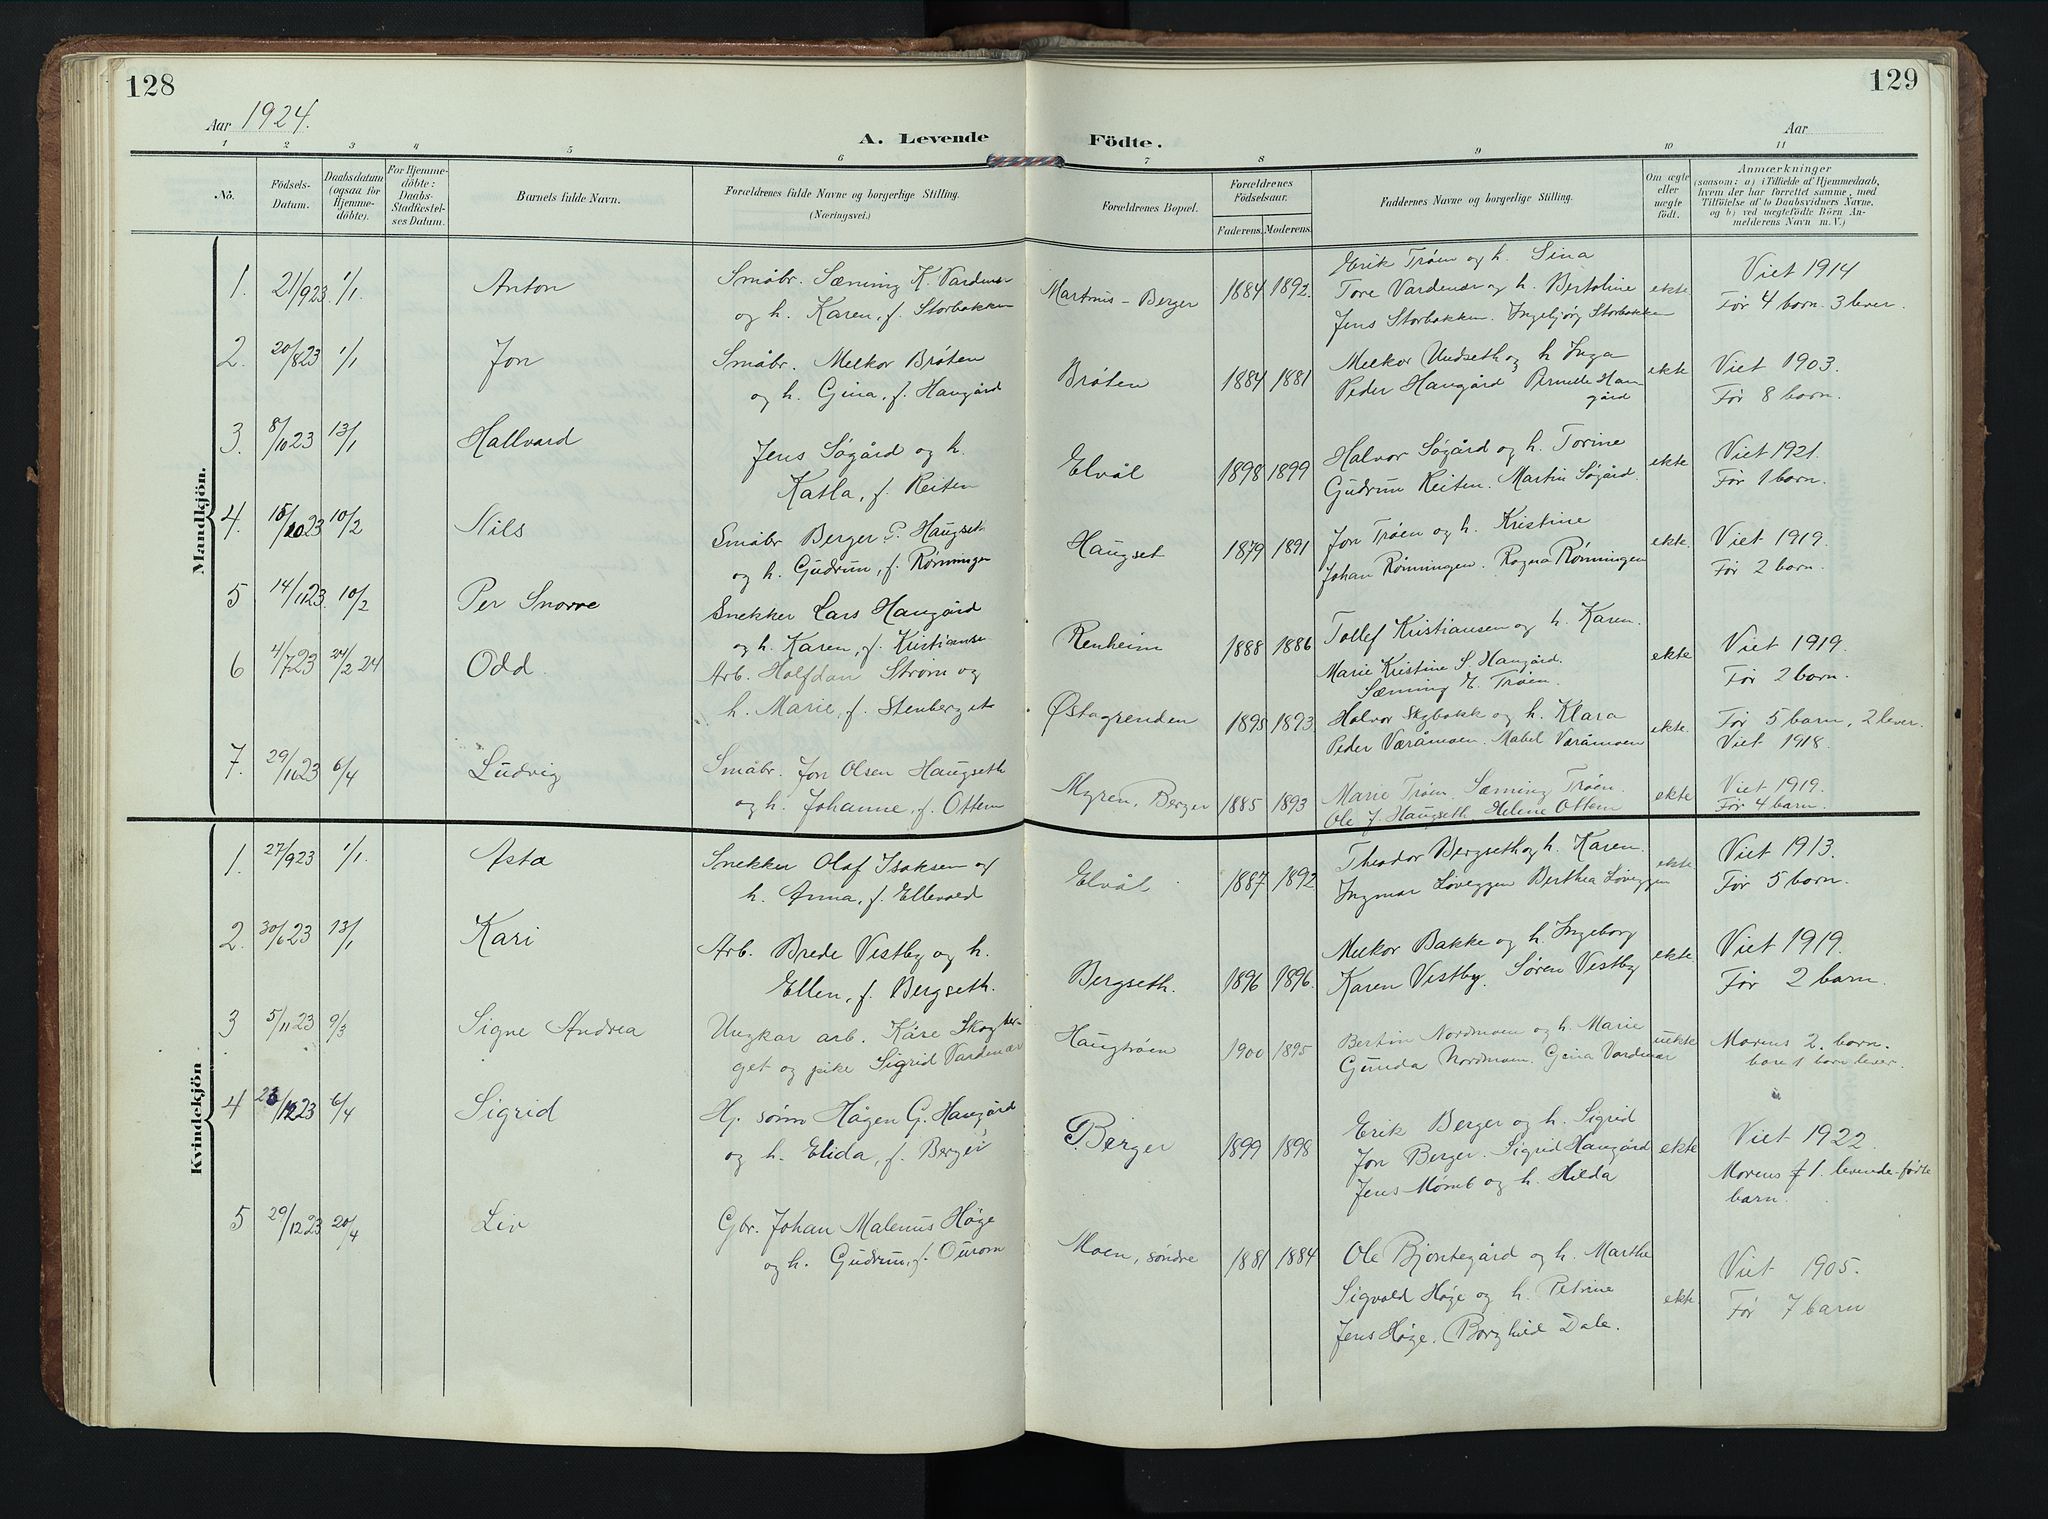 128
129
Aar 1924.
Aar
A. Levende Födte.
1 2 3 4 5 6 7 8 9 10 11
No.
Födsels-Datum.
Daabsdatum (ogsaa for Hjemmedöbte).
For Hjemmedöbte: Daabs-Stadfæstelses Datum.
Barnets fulde Navn.
Forældrenes fulde Navne og borgerlige Stilling. (Næringsvei.)
Forældrenes Bopæl.
Forældrenes Födselsaar.
Faderens. Moderens.
Faddernes Navne og borgerlige Stilling.
Om ægte eller uægte födt.
Anmærkninger
(saasom: a) i Tilfælde af Hjemmedaab, hvem der har forrettet samme, med Tilföielse af to Daabsvidners Navne, og b) ved uægtefödte Börn Anmelderens Navn m. V.)
Mandkjön.
1. 21/9 23. 1/1. Anton
Småbr. Sæming K. Vardenær
og h. Karen, f. Storbakken
Martinus-Berger 1884 1892.
Erik Trøen og h. Sina
Tore Vardenær og h. Bertoline
Jens Storbakken. Ingebjørg Storbakken
ekte
Viet 1914
Før 4 barn. 3 lever.
2. 20/8 23 1/1 Jon
Småbr. Melkor Brøten
og h. Gina, f. Haugård
Brøten 1884 1881
Melkor Undseth og h Inga
Peder Haugård Pernille Haugård
ekte
Viet 1903.
Før 8 barn.
3. 8/10 23 13/1 Hallvard
Jens Søgård og h.
Katla, f. Reiten
Elvål 1898 1899
Halvor Søgård og h. Torine
Gudrun Reiten. Martin Søgård.
ekte
Viet 1921.
Før 1 barn.
4. 15/10 23 10/2 Nils
Småbr Berger P. Haugset
og h. Gudrun, f. Rønningen
Haugset 1879 1891
Jon Trøen og h. Kristine
Johan Rønningen. Ragna Rønningen
ekte.
Viet 1919.
Før 2 barn.
5 14/11 23. 10/2 Per Snorre
Snekker Lars Haugård
og h. Karen, f. Kristianse
Renheim 1888 1886
Tollef Kristiansen og h. Karen.
Marie Kristine S. Haugård.
Sæming E. Trøen.
ekte
Viet 1919.
Før 2 barn.
6 4/7 23 24/2 24 Odd.
Arb. Halfdan Strøm og
h. Marie, f. Stenberget
Østagrenden 1895 1893
Halvor Skybakk og h. Klara
Peder Væråmoen. Mabel Væråmoen
ekte.
Før 5 barn, 2 lever.
Viet 1918.
7. 29/10 23 6/4 Ludvig
Småbr. Jon Olsen Haugseth
og h. Johanne, f. Ottem
Myren, Berger 1885 1893
Marie Trøen Sæming Trøen.
Ole J. Haugseth Helene Ottem
ekte
Viet 1919.
Før 4 barn.
Kvindekjön
1. 27/9 23 1/1. Asta
Snekker Olaf Isaksen og
h. Anna, f. Ellevold
Elvål 1887 1892
Theodor Bergseth og h. Karen.
Ingmar Løveggen Berthea Løveggen
ekte
Viet 1913.
Før 5 barn.
2. 30/6 23 13/1 Kari
Arb. Brede Vestby og h.
Ellen, f. Bergseth.
Bergseth. 1896 1896.
Melkor Bakke og h. Ingeborg
Karen Vestby. Søren Vestby
ekte.
Viet 1919.
Før 2 barn.
3 5/11 23 9/3 Signe Andrea
Ungkar arb. Kåre Skogber-
get og pike Sigrid Vardenær
Haugtrøen 1900 1895
Bertin Nordmoen og h. Marie
Gunda Nordmoen. Gina Vardenær
uekte
Morens 2. barn.
bare 1 barn lever.
4 23/12 23 6/4 Sigrid
Hj. sønn Hågen G. Haugård
og h. Elida, f. Berger
Berger 1899 1898
Erik Berger og h. Sigrid
Jon Berger. Sigrid Haugård
Jens Mømb og h. Hilda
ekte
Viet 1922.
Morens 1. levende-fødte
barn.
5 29/12 23 20/4 Liv
Gbr. Johan Malenus Høge
og h. Gudrun, f. Ourom
Moen, søndre 1881 1884
Ole Bjøntegård og h. Marthe
Sigvald Høge og h. Petrine
Jens Høge. Borghild Dale.
ekte
Viet 1905.
Før 7 barn